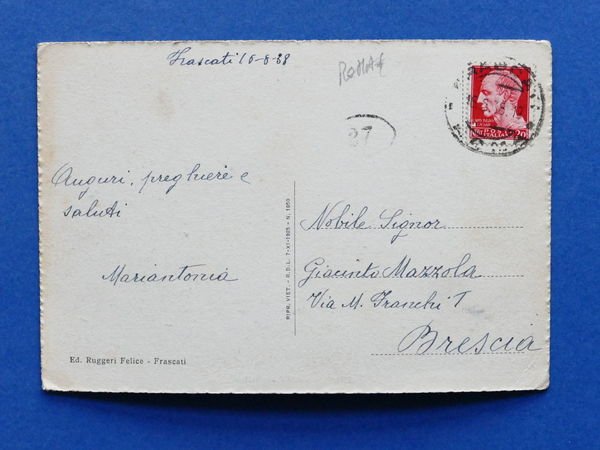 Frascati 16-8-38
ROMA
27
Auguri, preghiere e
saluti
Mariantonia
Nobile Signor
Giacinto Mazzola
Via M. Franchi 7
Brescia
RIPR. VIET. - R.D.L. 7-XI-1925 - N. 1950
Ed. Ruggeri Felice - Frascati